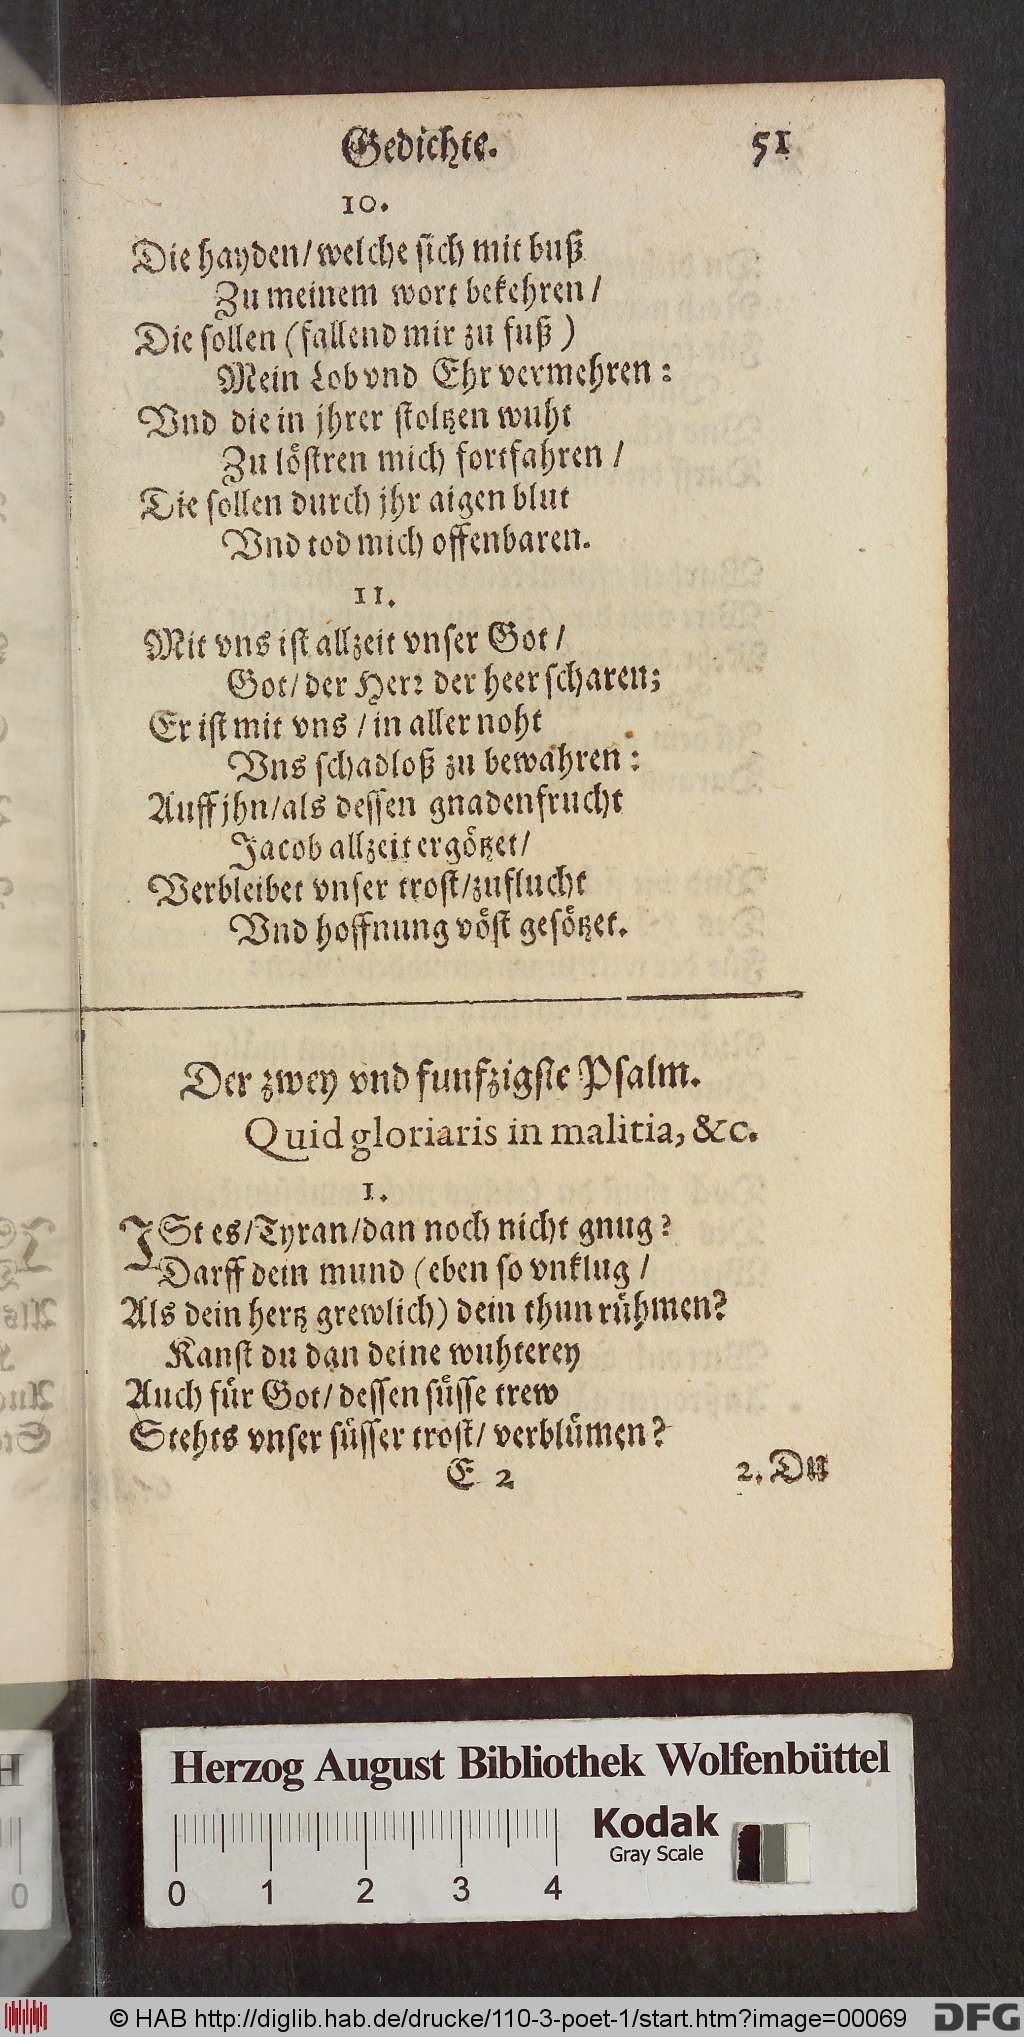 Gedichte. 51
10.
Die hayden/ welche sich mit buß
Zu meinem wort bekehren /
Die sollen (fallend mir zu fuß)
Mein Lob vnd Ehr vermehren:
Vnd die in jhrer stoltzen wuht
Zu löstren mich fortfahren /
Die sollen durch jhr aigen blut
Vnd tod mich offenbaren.
11.
Mit vns ist allzeit vnser Got/
Got/ der Herr der heerscharen;
Er ist mit vns / in aller noht
Vns schadloß zu bewahren:
Auff jhn/ als dessen gnadenfrucht
Jacob allzeit ergötzet/
Verbleibet vnser trost/ zuflucht
Vnd hoffnung vöst gesötzet.
Der zwey vnd funfzigste Psalm.
Quid gloriaris in malitia, &c.
1.
ISt es/ Tyran/ dan noch nicht gnug?
Darff dein mund (eben so vnklug /
Als dein hertz grewlich) dein thun rühmen?
Kanst du dan deine wuhterey
Auch für Got/ dessen süsse trew
Stehts vnser süsser trost/ verblümen?
E 2 2. DU
Herzog August Bibliothek Wolfenbüttel
Kodak
Gray Scale
0 1 2 3 4
0
© HAB http://diglib.hab.de/drucke/110-3-poet-1/start.htm?image=00069
DFG